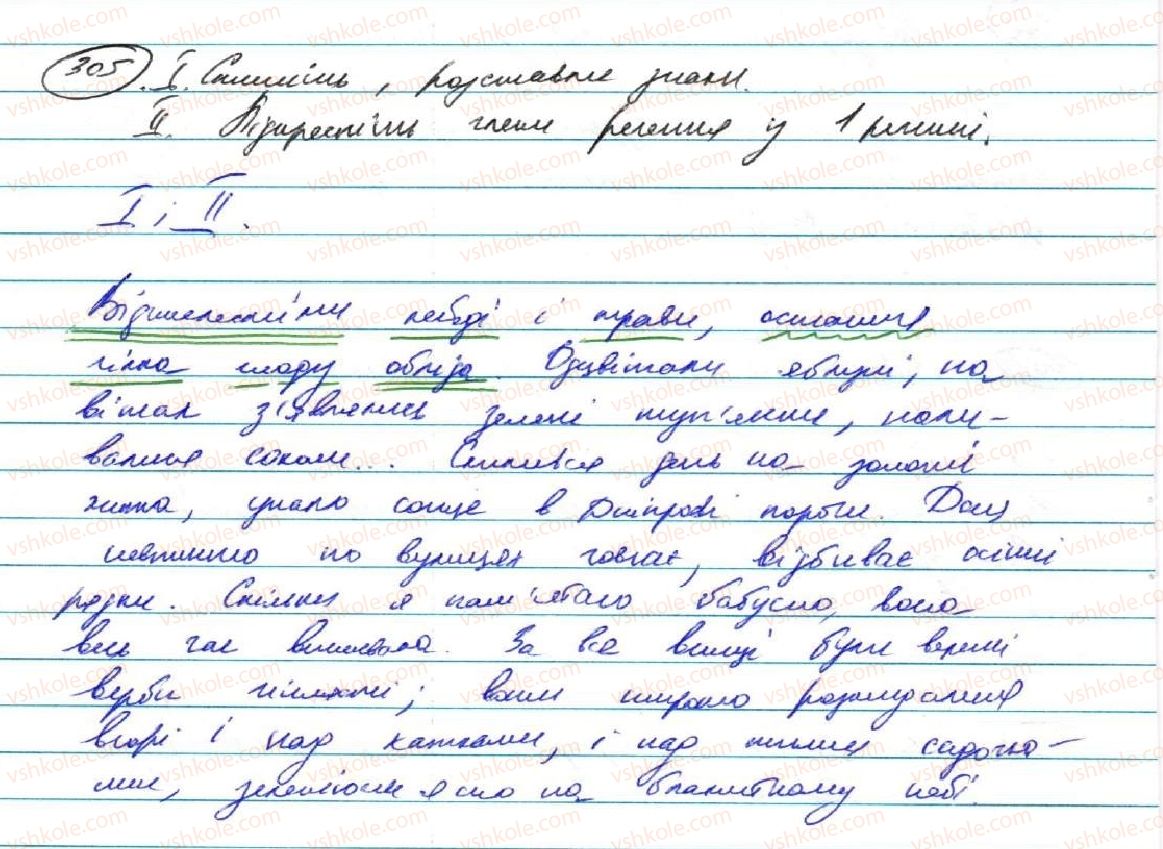 305. I. Спишіть, розставте знаки.
II. Підкресліть члени речення у 1 реченні.
I і II.
Відшелестіли лебеді і трави, остання
гілка саду обліта. Одцвітали яблуні, на
вітах з'явились зелені пуп'янки, нали-
валися соком... Схилився день на золоті
жита, упало сонце в Дніпрові пороги. Дощ
невпинно по вулицях човгає, відбиває осінні
рядки. Скільки я пам'ятаю бабусю, вона
весь час вишивала. За все вищі були верхи
верби гіллясті; вони широко розкидалися
вгорі і над хатками, і над тими садочка-
ми, зеленіючи ясно на блакитному небі.